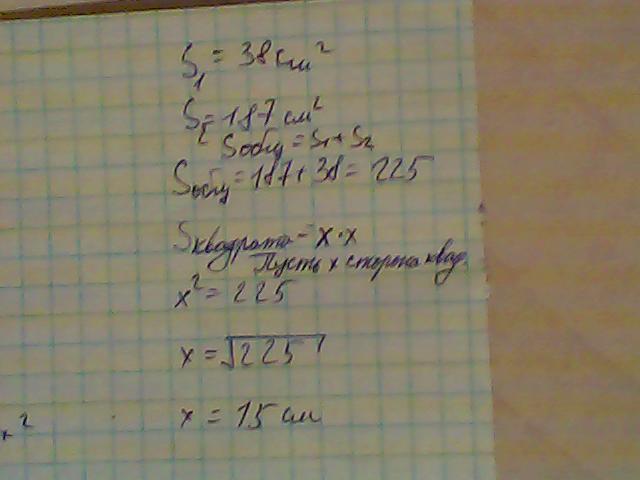 S₁ = 38 см²
S₂ = 187 см²
Sобщ = S₁ + S₂
Sобщ = 187 + 38 = 225
Sквадрата = x · x
Пусть x сторона квад.
x² = 225
x = √225
x = 15 см
x²